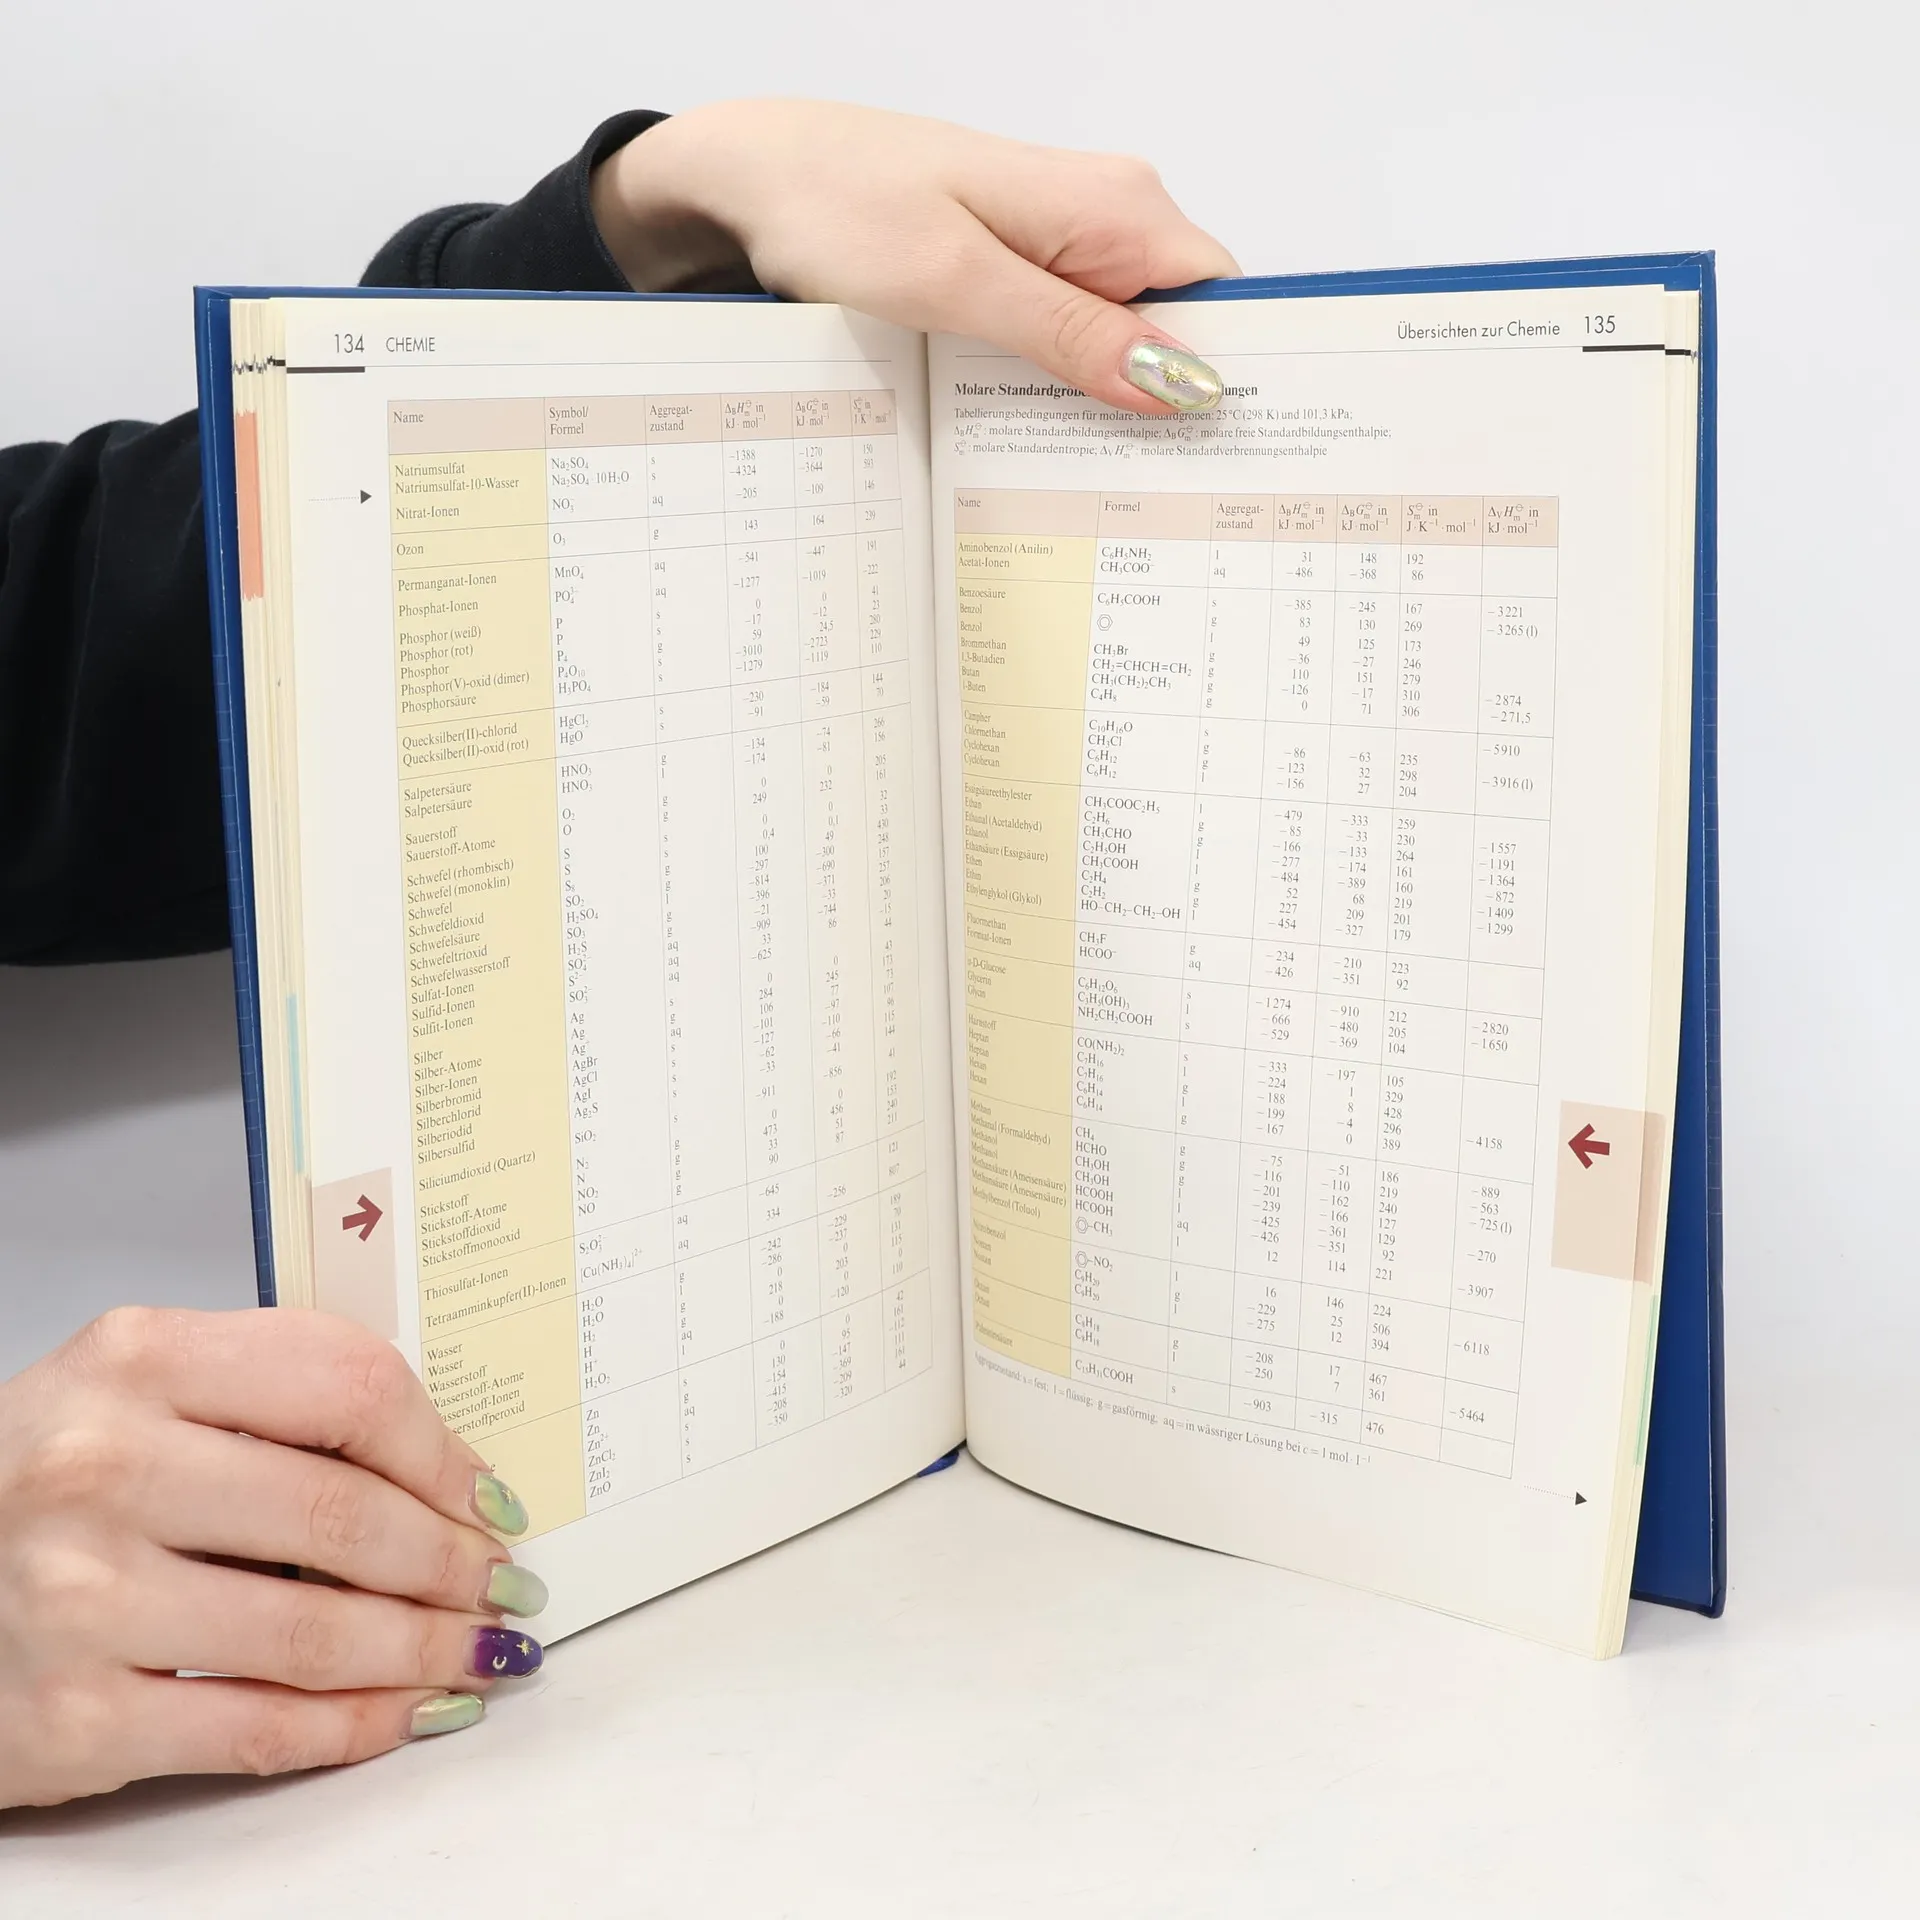 134 CHEMIE
Name Symbol/ Formel Aggregat-zustand ΔBH⦵m in kJ · mol⁻¹ ΔBG⦵m in kJ · mol⁻¹ S⦵m in
Natriumsulfat Na₂SO₄ s −1388 −1270 150
Natriumsulfat-10-Wasser Na₂SO₄ · 10 H₂O s −4324 −3644 593
Nitrat-Ionen NO₃⁻ aq −205 −109 146
Ozon O₃ g 143 164 239
Permanganat-Ionen MnO₄⁻ aq −541 −447 191
Phosphat-Ionen PO₄³⁻ aq −1277 −1019 −222
Phosphor (weiß) P s 0 0 41
Phosphor (rot) P s −17 −12 23
Phosphor P₄ g 59 24,5 280
Phosphor(V)-oxid (dimer) P₄O₁₀ s −3010 −2723 229
Phosphorsäure H₃PO₄ s −1279 −1119 110
Quecksilber(II)-chlorid HgCl₂ s −230 −184 144
Quecksilber(II)-oxid (rot) HgO s −91 −59 70
Salpetersäure HNO₃ g −134 −74 266
Salpetersäure HNO₃ l −174 −81 156
Sauerstoff O₂ g 0 0 205
Sauerstoff-Atome O g 249 232 161
Schwefel (rhombisch) S s 0 0 32
Schwefel (monoklin) S s 0,4 0,1 33
Schwefel S₈ g 100 49 430
Schwefeldioxid SO₂ g −297 −300 248
Schwefelsäure H₂SO₄ l −814 −690 157
Schwefeltrioxid SO₃ g −396 −371 257
Schwefelwasserstoff H₂S g −21 −33 206
Sulfat-Ionen SO₄²⁻ aq −909 −744 20
Sulfid-Ionen S²⁻ aq 33 86 −15
Sulfit-Ionen SO₃²⁻ aq −625 44
Silber Ag s 0 0 43
Silber-Atome Ag g 284 245 173
Silber-Ionen Ag⁺ aq 106 77 73
Silberbromid AgBr s −101 −97 107
Silberchlorid AgCl s −127 −110 96
Silberiodid AgI s −62 −66 115
Silbersulfid Ag₂S s −33 −41 144
Siliciumdioxid (Quartz) SiO₂ s −911 −856 41
Stickstoff N₂ g 0 0 192
Stickstoff-Atome N g 473 456 153
Stickstoffdioxid NO₂ g 33 51 240
Stickstoffmonooxid NO g 90 87 211
Thiosulfat-Ionen S₂O₃²⁻ aq −645 121
Tetraamminkupfer(II)-Ionen [Cu(NH₃)₄]²⁺ aq 334 −256 807
Wasser H₂O g −242 −229 189
Wasser H₂O l −286 −237 70
Wasserstoff H₂ g 0 0 131
Wasserstoff-Atome H g 218 203 115
asserstoff-Ionen H⁺ aq 0 0 0
serstoffperoxid H₂O₂ l −188 −120 110
Zn s 0 0 42
Zn g 130 95 161
Zn²⁺ aq −154 −147 −112
ZnCl₂ s −415 −369 111
ZnI₂ s −208 −209 161
e ZnO s −350 −320 44
Übersichten zur Chemie 135
Molare Standardgröße lungen
Tabellierungsbedingungen für molare Standardgrößen: 25 °C (298 K) und 101,3 kPa;
ΔBH⦵m : molare Standardbildungsenthalpie; ΔBG⦵m : molare freie Standardbildungsenthalpie;
S⦵m : molare Standardentropie; ΔVH⦵m : molare Standardverbrennungsenthalpie
Name Formel Aggregat-zustand ΔBH⦵m in kJ · mol⁻¹ ΔBG⦵m in kJ · mol⁻¹ S⦵m in J · K⁻¹ · mol⁻¹ ΔVH⦵m in kJ · mol⁻¹
Aminobenzol (Anilin) C₆H₅NH₂ l 31 148 192
Acetat-Ionen CH₃COO⁻ aq −486 −368 86
Benzoesäure C₆H₅COOH s −385 −245 167 −3221
Benzol g 83 130 269 −3265 (l)
Benzol l 49 125 173
Brommethan CH₃Br g −36 −27 246
1,3-Butadien CH₂=CHCH=CH₂ g 110 151 279
Butan CH₃(CH₂)₂CH₃ g −126 −17 310 −2874
1-Buten C₄H₈ g 0 71 306 −271,5
Campher C₁₀H₁₆O s −5910
Chlormethan CH₃Cl g −86 −63 235
Cyclohexan C₆H₁₂ g −123 32 298 −3916 (l)
Cyclohexan C₆H₁₂ l −156 27 204
Essigsäureethylester CH₃COOC₂H₅ l −479 −333 259
Ethan C₂H₆ g −85 −33 230 −1557
Ethanal (Acetaldehyd) CH₃CHO g −166 −133 264 −1191
Ethanol C₂H₅OH l −277 −174 161 −1364
Ethansäure (Essigsäure) CH₃COOH l −484 −389 160 −872
Ethen C₂H₄ g 52 68 219 −1409
Ethin C₂H₂ g 227 209 201 −1299
Ethylenglykol (Glykol) HO–CH₂–CH₂–OH l −454 −327 179
Fluormethan CH₃F g −234 −210 223
Formiat-Ionen HCOO⁻ aq −426 −351 92
α-D-Glucose C₆H₁₂O₆ s −1274 −910 212 −2820
Glycerin C₃H₅(OH)₃ l −666 −480 205 −1650
Glycin NH₂CH₂COOH s −529 −369 104
Harnstoff CO(NH₂)₂ s −333 −197 105
Heptan C₇H₁₆ l −224 1 329
Heptan C₇H₁₆ g −188 8 428
Hexan C₆H₁₄ l −199 −4 296 −4158
Hexan C₆H₁₄ g −167 0 389
Methan CH₄ g −75 −51 186 −889
Methanal (Formaldehyd) HCHO g −116 −110 219 −563
Methanol CH₃OH g −201 −162 240 −725 (l)
Methanol CH₃OH l −239 −166 127
Methansäure (Ameisensäure) HCOOH l −425 −361 129 −270
Methansäure (Ameisensäure) HCOOH aq −426 −351 92
Methylbenzol (Toluol) –CH₃ l 12 114 221 −3907
Nitrobenzol –NO₂ l 16 146 224
Nonan C₉H₂₀ g −229 25 506
Nonan C₉H₂₀ l −275 12 394 −6118
Octan C₈H₁₈ g −208 17 467
Octan C₈H₁₈ l −250 7 361 −5464
Palmitinsäure C₁₅H₃₁COOH s −903 −315 476
Aggregatzustand: s = fest; l = flüssig; g = gasförmig; aq = in wässriger Lösung bei c = 1 mol · l⁻¹